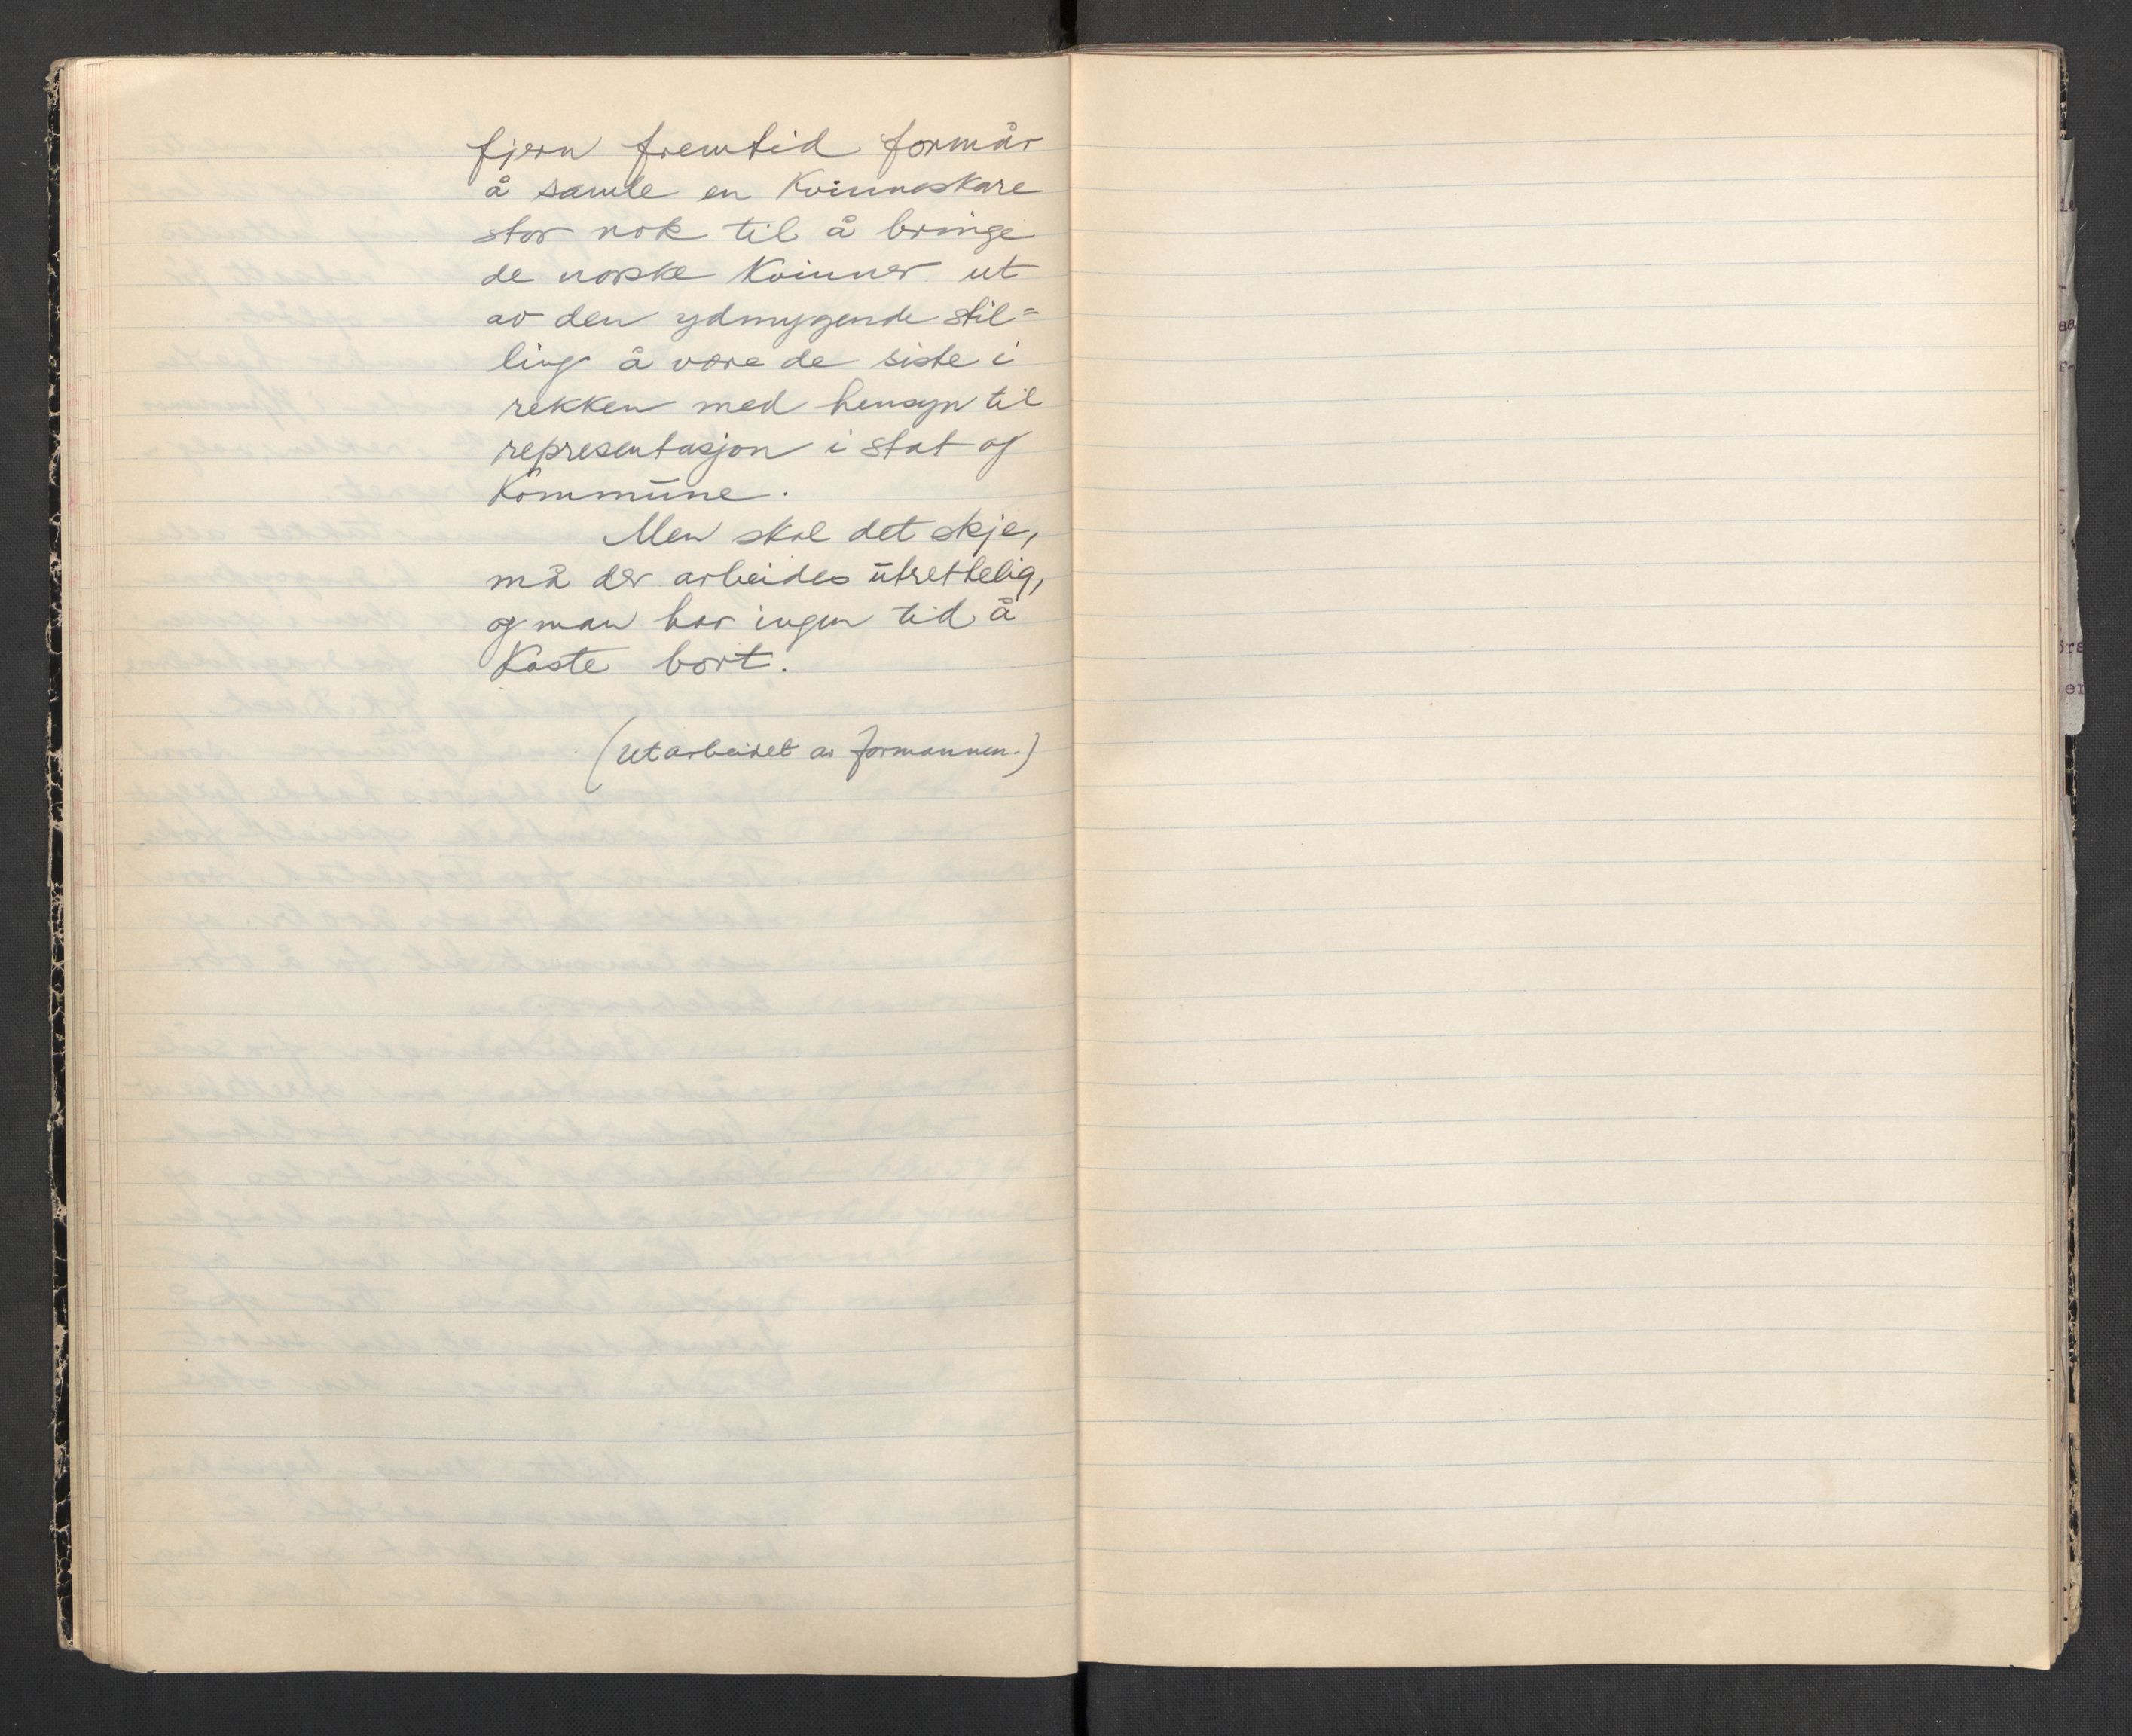 fjern fremtid formår
å samle en Kvinneskare
stor nok til å bringe
de norske Kvinner ut
av den ydmygende stil=
ling å være de siste i
rekken med hensyn til
representasjon i stat og
Kommune.
Men skal det skje,
må der arbeides utrettelig,
og man har ingen tid å
Kaste bort.
(Utarbeidet av formannen.)